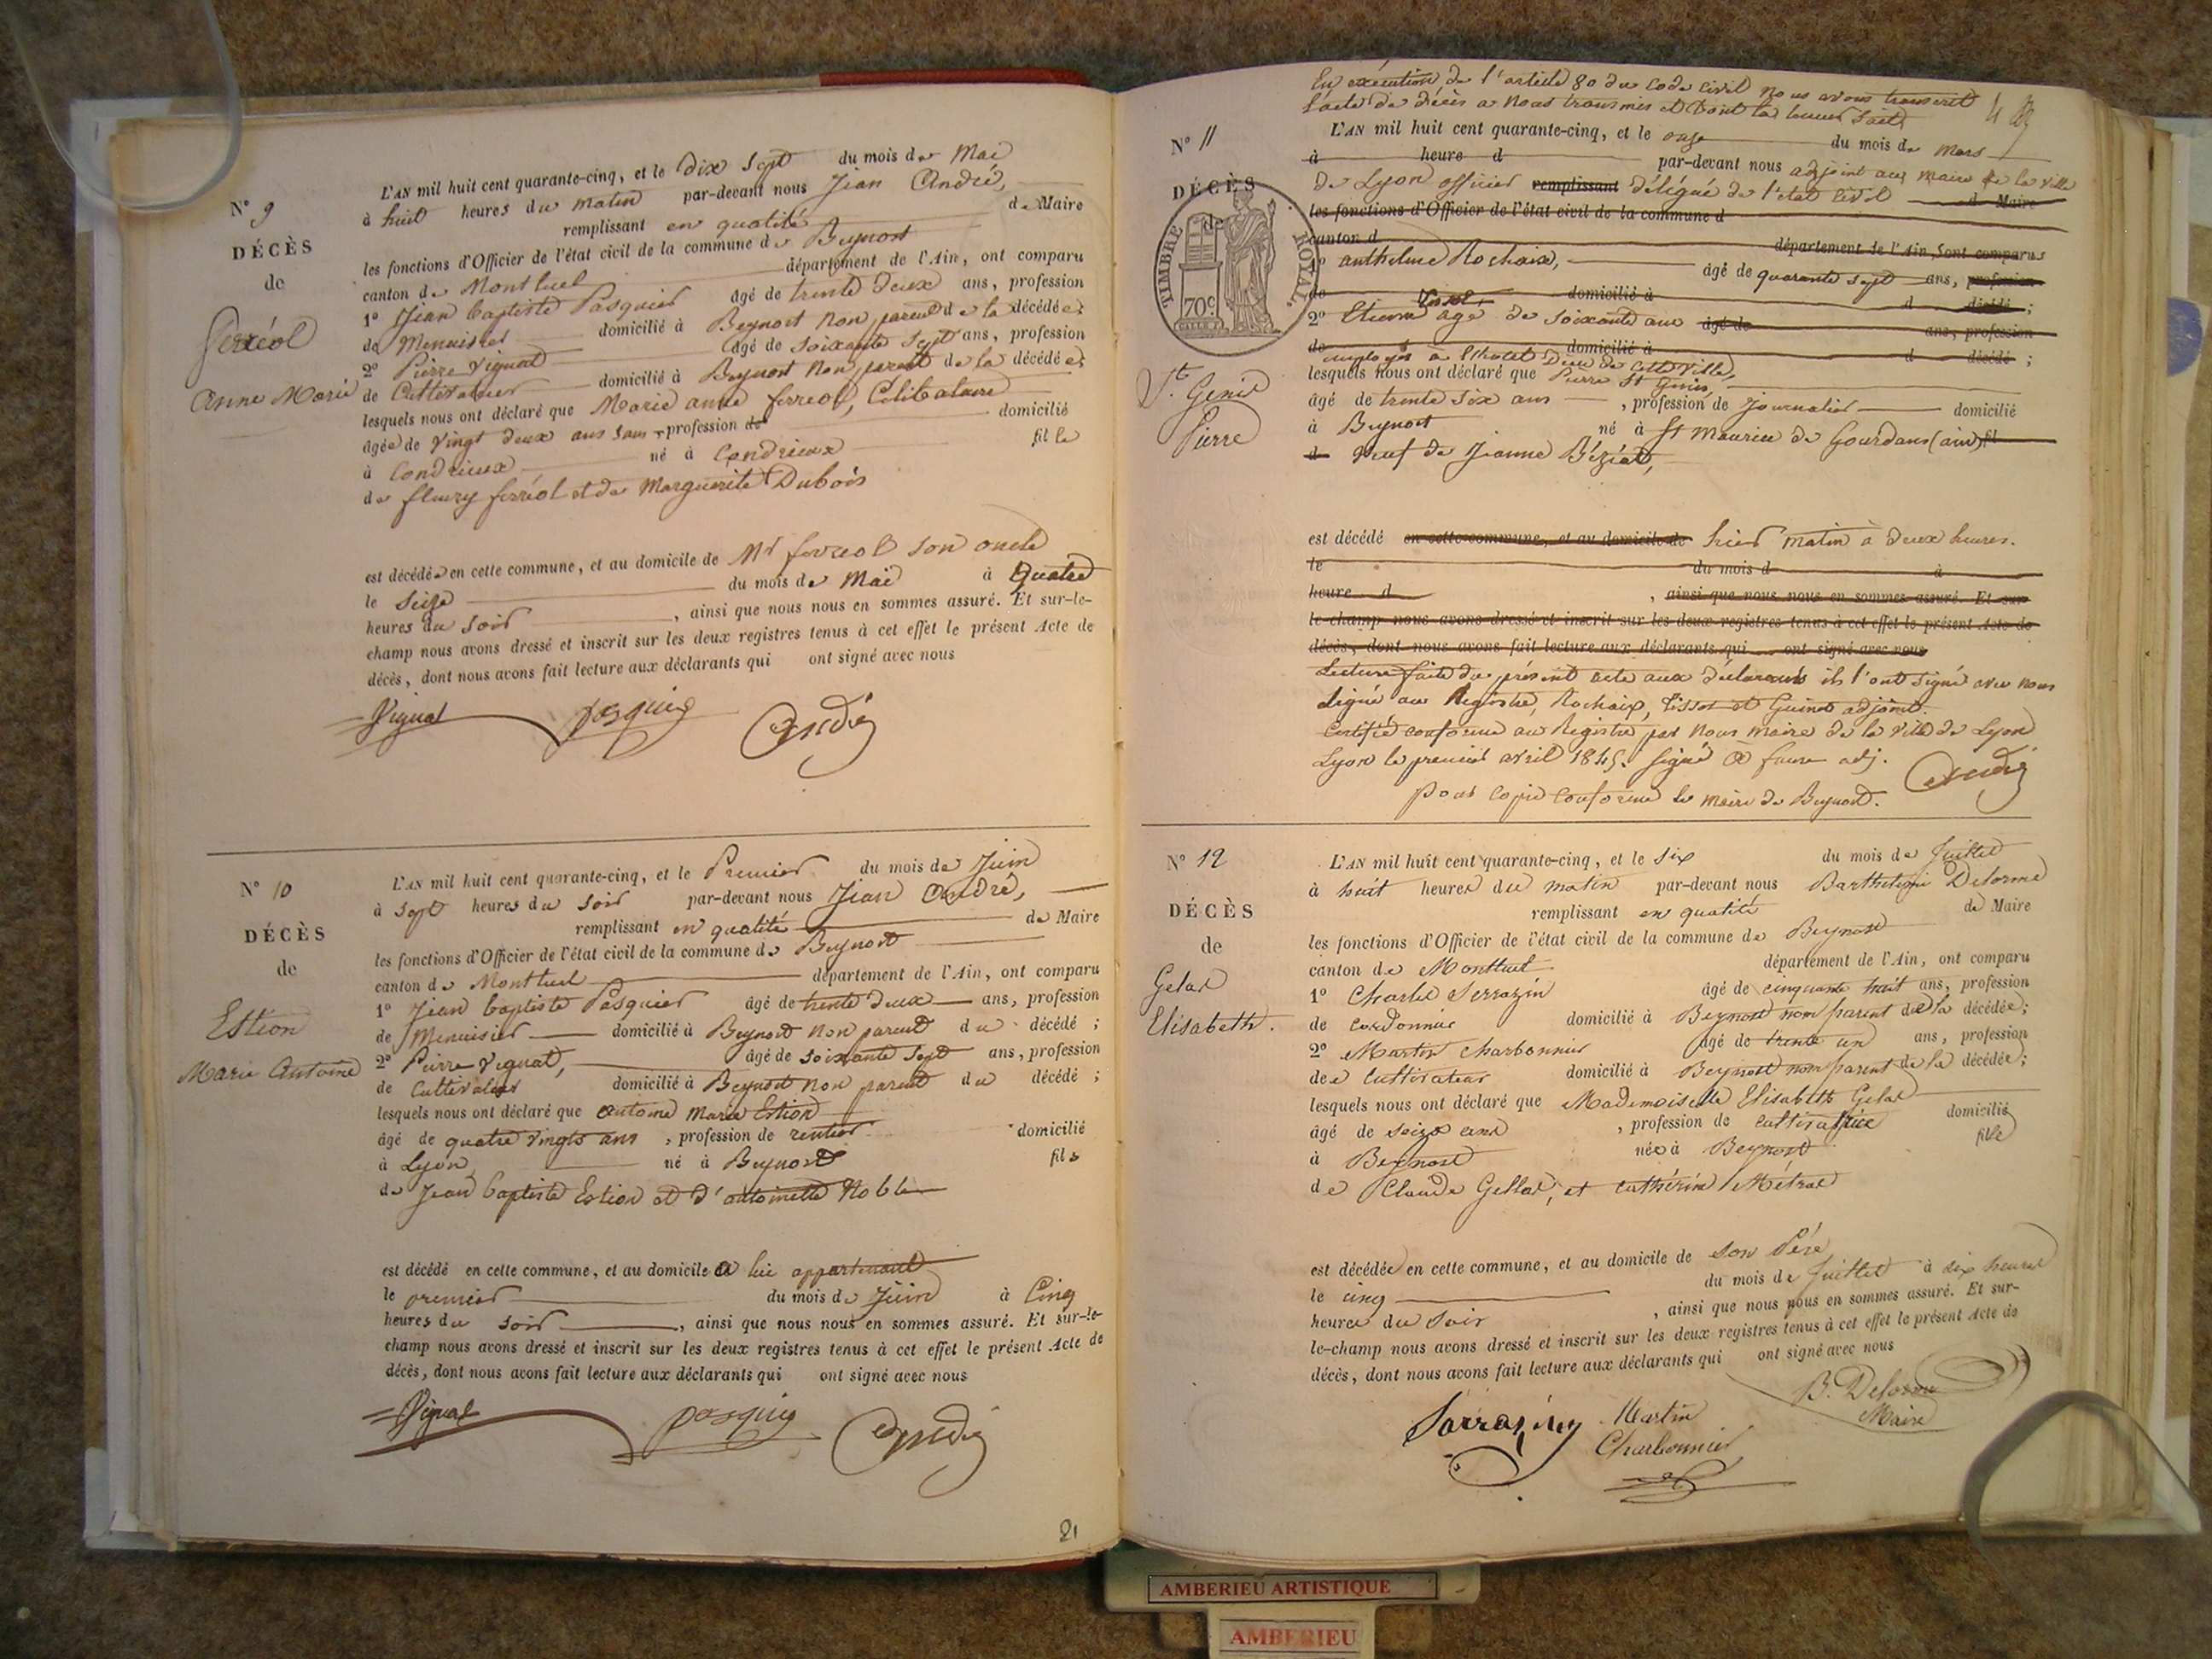 N° 9
DÉCÈS
de
Ferréol
Anne Marie
L'AN mil huit cent quarante-cinq, et le Dix Sept du mois de Mai
à huit heures du matin par-devant nous Jean André,
remplissant en qualité de Maire
les fonctions d'Officier de l'état civil de la commune de Beynost
canton de Montluel département de l'Ain, ont comparu
1° Jean Baptiste Pasquier âgé de trente deux ans, profession
de Menuisier domicilié à Beynost non parent de la décédée;
2° Pierre Vignat âgé de soixante Sept ans, profession
de Cultivateur domicilié à Beynost non parent de la décédée;
lesquels nous ont déclaré que Marie anne ferreol, Celibataire
âgée de Vingt deux ans sans profession de domicilié
à Condrieux né à Condrieux fille
de fleury ferréol et de Marguerite Dubois
est décédée en cette commune, et au domicile de Mr ferreol son oncle
le Seize du mois de Mai à Quatre
heures du Soir, ainsi que nous nous en sommes assuré. Et sur-le-
champ nous avons dressé et inscrit sur les deux registres tenus à cet effet le présent Acte de
décès, dont nous avons fait lecture aux déclarants qui ont signé avec nous
Vignat Pasquier André
N° 10
DÉCÈS
de
Estion
Marie Antoine
L'AN mil huit cent quarante-cinq, et le Premier du mois de Juin
à Sept heures du Soir par-devant nous Jean André,
remplissant en qualité de Maire
les fonctions d'Officier de l'état civil de la commune de Beynost
canton de Montluel département de l'Ain, ont comparu
1° Jean Baptiste Pasquier âgé de trente deux ans, profession
de Menuisier domicilié à Beynost non parent du décédé;
2° Pierre Vignat, âgé de soixante Sept ans, profession
de Cultivateur domicilié à Beynost non parent du décédé;
lesquels nous ont déclaré que antoine Marie Estion
âgé de quatre vingts ans, profession de rentier domicilié
à Lyon né à Beynost fils
de Jean baptiste Estion et d'antoinette Noble
est décédé en cette commune, et au domicile a lui appartenant
le premier du mois de Juin à Cinq
heures du soir, ainsi que nous nous en sommes assuré. Et sur-le-
champ nous avons dressé et inscrit sur les deux registres tenus à cet effet le présent Acte de
décès, dont nous avons fait lecture aux déclarants qui ont signé avec nous
Vignat Pasquier André
21
En exécution de l'article 80 du Code Civil nous avons transcrit
l'acte de décès a nous transmis et dont la teneur suit
N° 11
DÉCÈS
de
TIMBRE ROYAL.
70c
St. Genis
Pierre
L'AN mil huit cent quarante-cinq, et le onze du mois de Mars
à heure d par-devant nous adjoint au maire de la ville
de Lyon officier remplissant délégué de l'état civil d Maire
les fonctions d'Officier de l'état civil de la commune d
canton d département de l'Ain, sont comparus
1° anthelme Rochaix, âgé de quarante sept ans, profession
de domicilié à d décédé;
2° Etienne Tissot âgé de soixante ans âgé de ans, profession
de domicilié à d décédé;
employés à l'hotel Dieu de cette ville,
lesquels nous ont déclaré que Pierre St Genis,
âgé de trente six ans, profession de journalier domicilié
à Beynost né à St Maurice de Gourdans (ain) fil
d veuf de Jeanne Béziat,
est décédé en cette commune, et au domicile de hier matin à deux heures.
le du mois d à
heure d, ainsi que nous nous en sommes assuré. Et sur
le-champ nous avons dressé et inscrit sur les deux registres tenus à cet effet le présent Acte de
décès, dont nous avons fait lecture aux déclarants qui ont signé avec nous
Lecture faite du présent acte aux déclarants ils l'ont signé avec nous
signé au Registre, Rochaix, Tissot et Guinet adjoint.
Certifié conforme au Registre par nous maire de la ville de Lyon
Lyon le premier avril 1845. signé faure adj.
pour copie conforme le maire de Beynost. André
N° 12
DÉCÈS
de
Gelas
Elisabeth.
L'AN mil huit cent quarante-cinq, et le Six du mois de Juillet
à huit heures du matin par-devant nous Barthélemi Delorme
remplissant en qualité de Maire
les fonctions d'Officier de l'état civil de la commune de Beynost
canton de Montluel département de l'Ain, ont comparu
1° Charles Serrazin âgé de cinquante huit ans, profession
de cordonnier domicilié à Beynost non parent de la décédée;
2° Martin Charbonnier âgé de trente un ans, profession
de cultivateur domicilié à Beynost non parent de la décédée;
lesquels nous ont déclaré que Mademoiselle Elisabeth Gelas
âgé de seize ans, profession de cultivatrice domicilié
à Beynost née à Beynost fille
de Claude Gellas, et cathérine Métras
est décédée en cette commune, et au domicile de son Père
le cinq du mois de Juillet à dix heures
heures du Soir, ainsi que nous nous en sommes assuré. Et sur-
le-champ nous avons dressé et inscrit sur les deux registres tenus à cet effet le présent Acte de
décès, dont nous avons fait lecture aux déclarants qui ont signé avec nous
Sarrazin Martin B. Delorme
Charbonnier Maire
AMBERIEU ARTISTIQUE
AMBERIEU